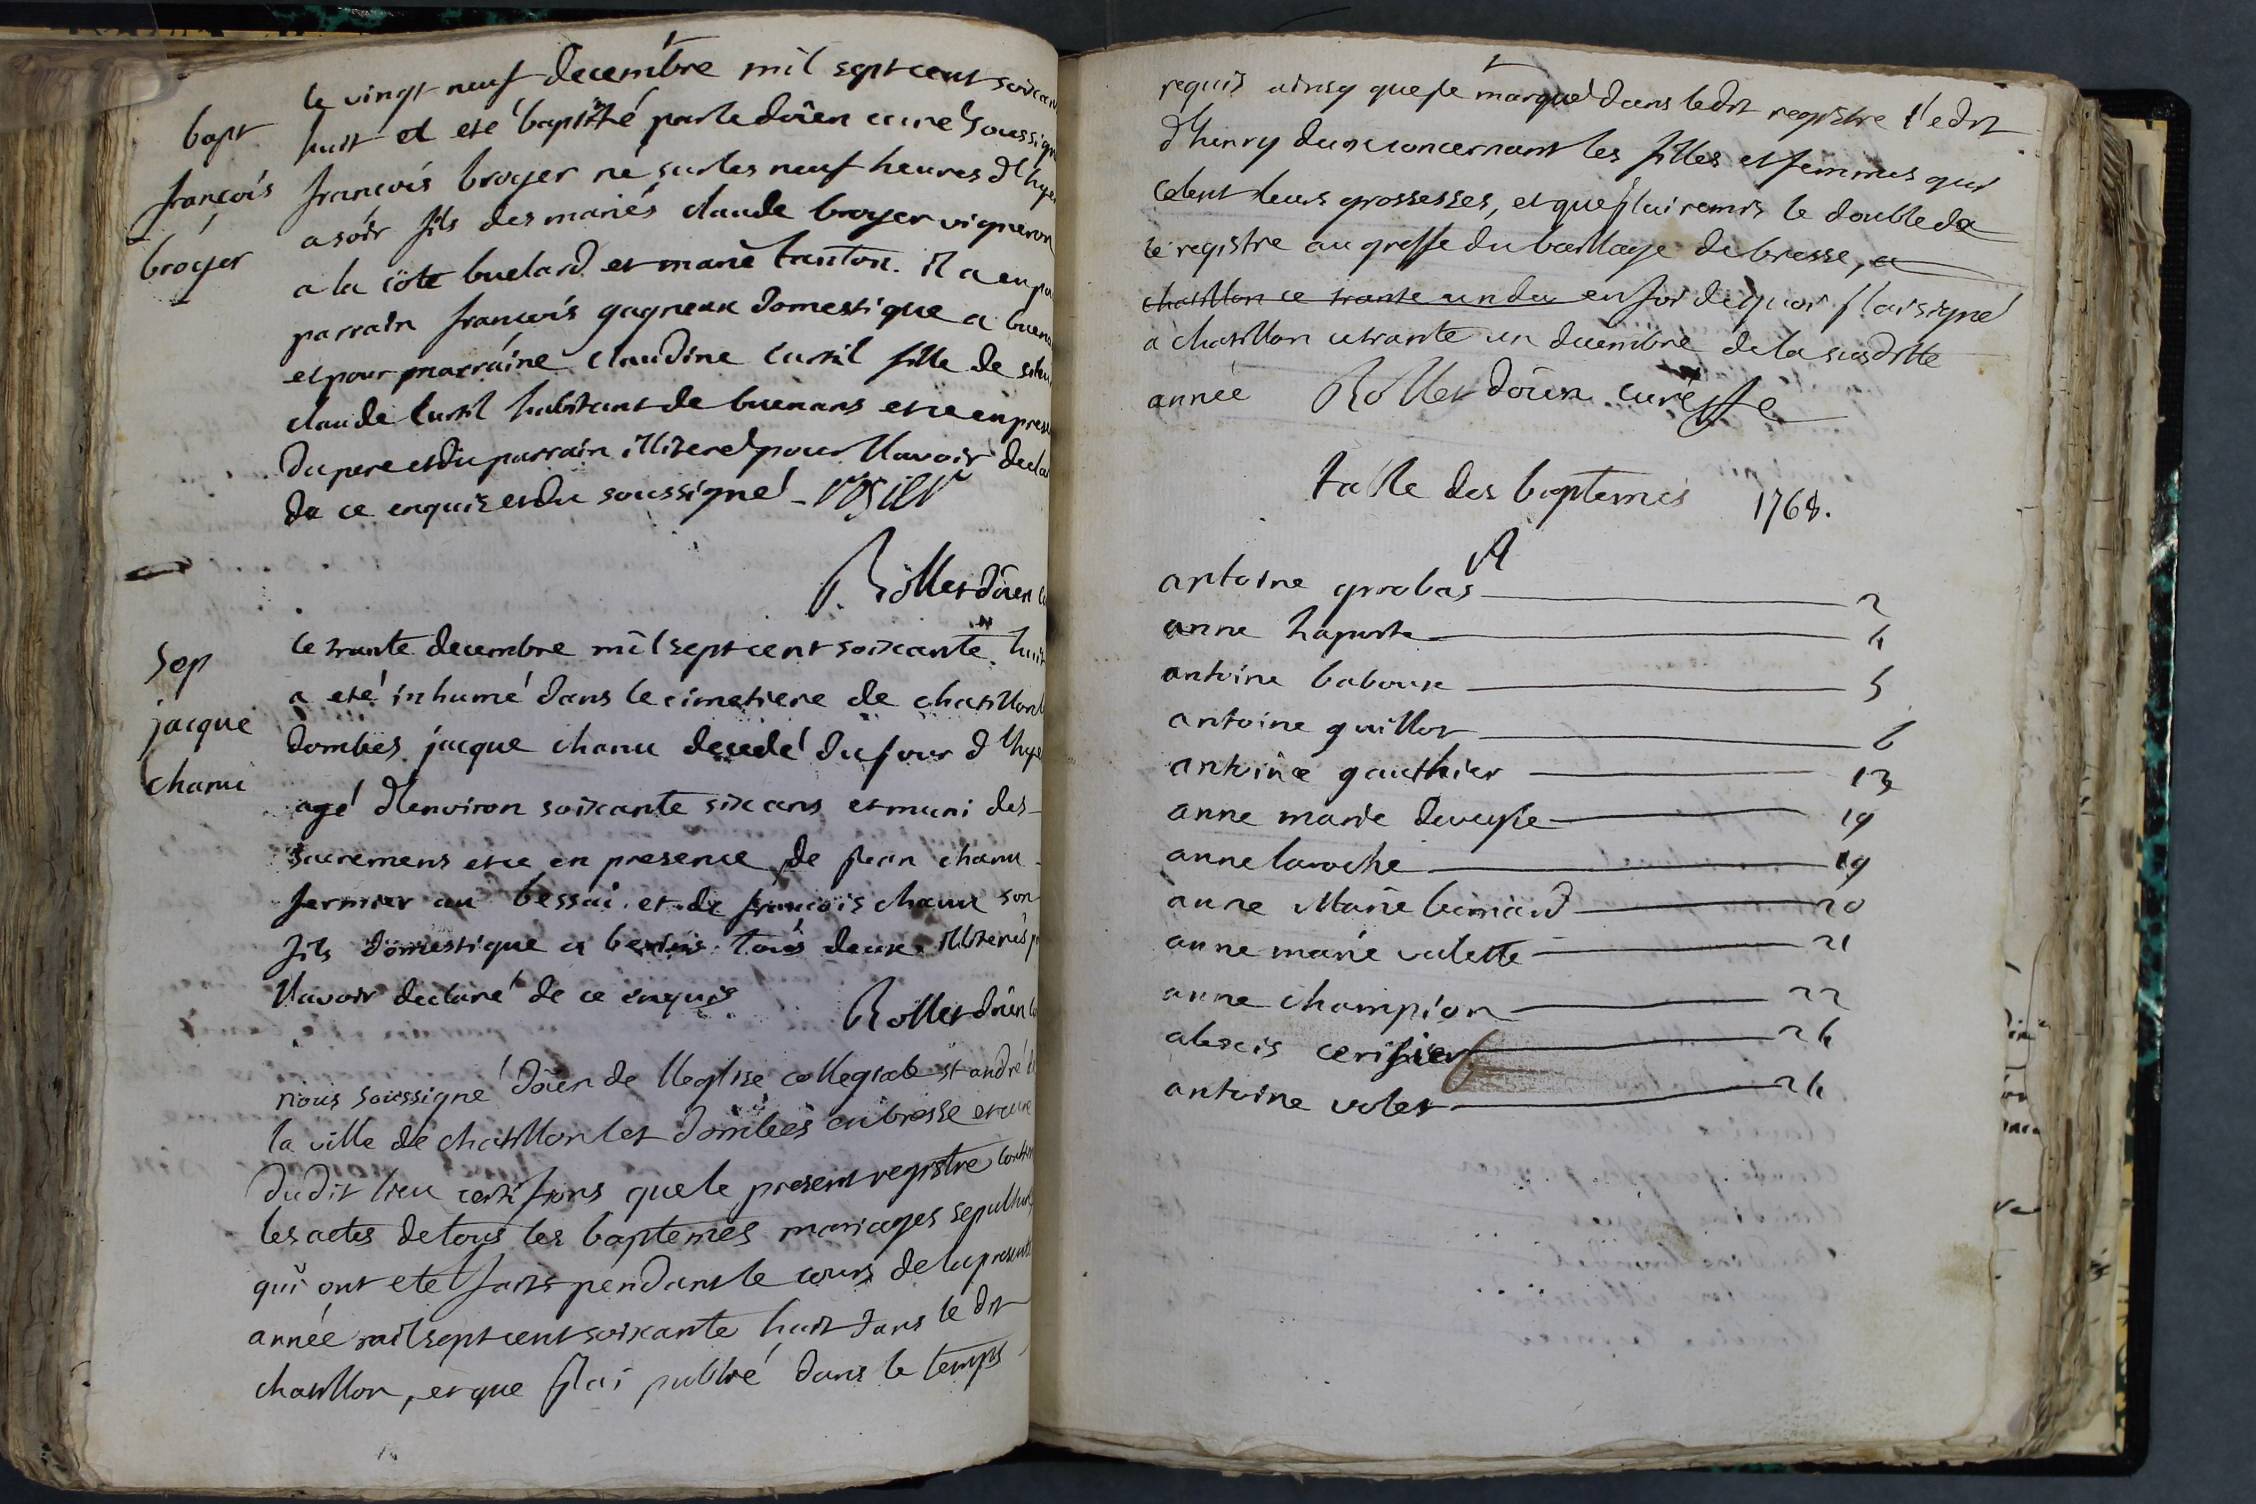 bapt
françois
broyer
le vingt neuf decembre mil sept cent soixan
huit a eté baptizé par le doïen curé soussign
françois broyer né sur les neuf heures d'hyer
a soir fils des mariés claude broyer vigneron
a la cöte buelard et marie tanton. il a eu po
parrain françois gagneux domestique a buena
et pour marraine claudine curtil fille de
claude curtil habitant de buenans et ce en prese
du pere et du parrain illiteré pour l'avoir decla
de ce enquis et du soussigné
Rollet doïen
Sep
jacque
chanu
le trante decembre mil sept cent soixante huit
a eté inhumé dans le cimetiere de chatillon l
dombes jacque chanu decedé du jour d'hye
agé d'environ soixante six ans et muni des
sacremens et ce en presence de jean chanu
fermier au bessai et de françois chanu son
fils domestique a tous deux illiterés p
l'avoir declaré de ce enquis
Rollet doïen
nous soussigné doïen de l'eglise collegiale st andré
la ville de chatillon let dombes en bresse et curé
du dit lieu certifions que le present registre contien
les actes de tous les baptemes mariages sepultures
qui ont eté faits pendant le cours de la presente
année mil sept cent soixante huit dans le dit
chatillon, et que j'ai publié dans le temps
requis ainsy que je marqué dans le dit registre l'edit
d'henry deux concernant les filles et femmes qui
celent leurs grossesses, et que j'ai remis le double de
ce registre au greffe du baillage de bresse, a
chatillon ce trante un du en foi de quoi j'ai signé
a chatillon ce trante un decembre de la susditte
année Rollet doïen curé
table des baptemes 1768.
A
antoine grrobas 2
anne laporte 4
antoine baboux 5
antoine guillot 6
antoine gauthier 13
anne marie deveyle 19
anne laroche 19
anne Marie 20
anne marie valette 21
anne champion 22
alexis cerisier 24
antoine volet 24